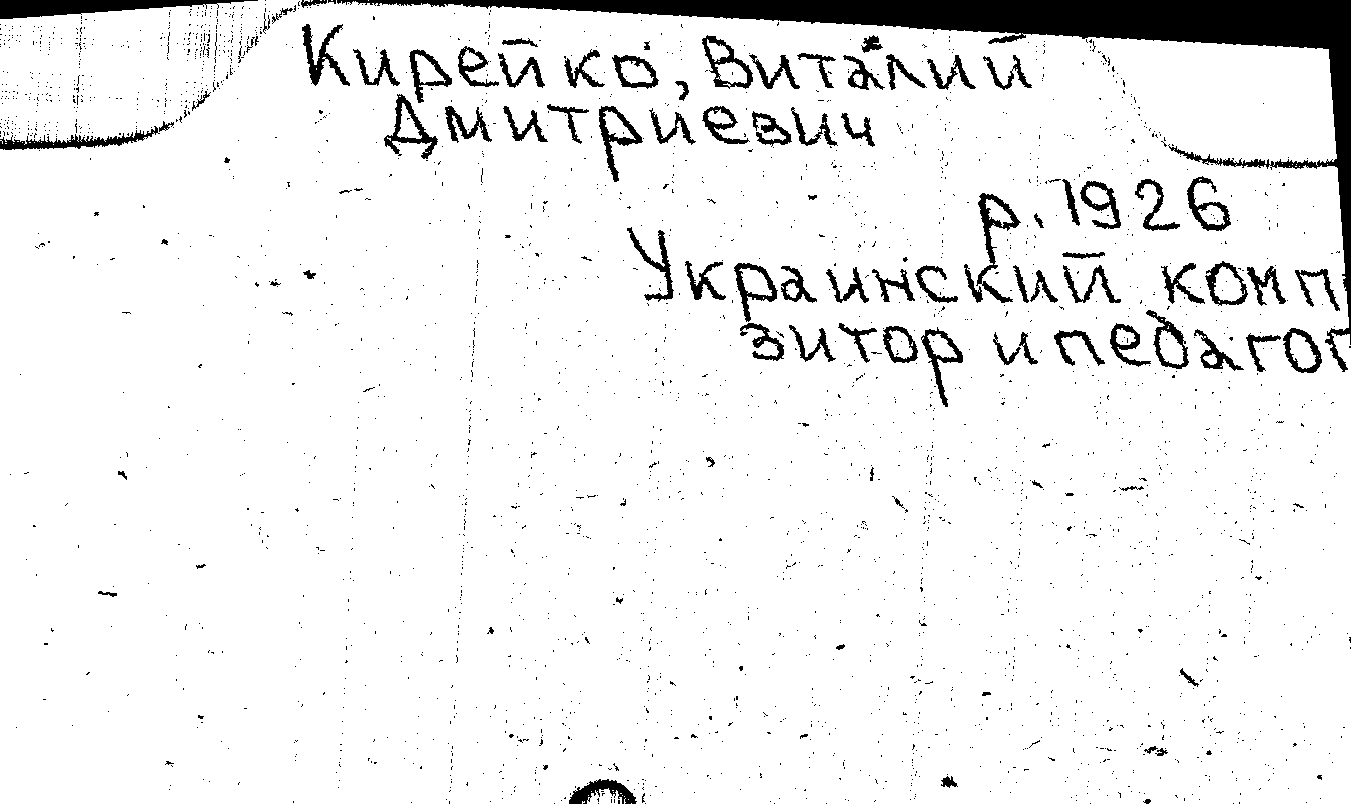 Кирейко, Виталий
Дмитриевич
р. 1926
Украинский комп
зитор и педагог